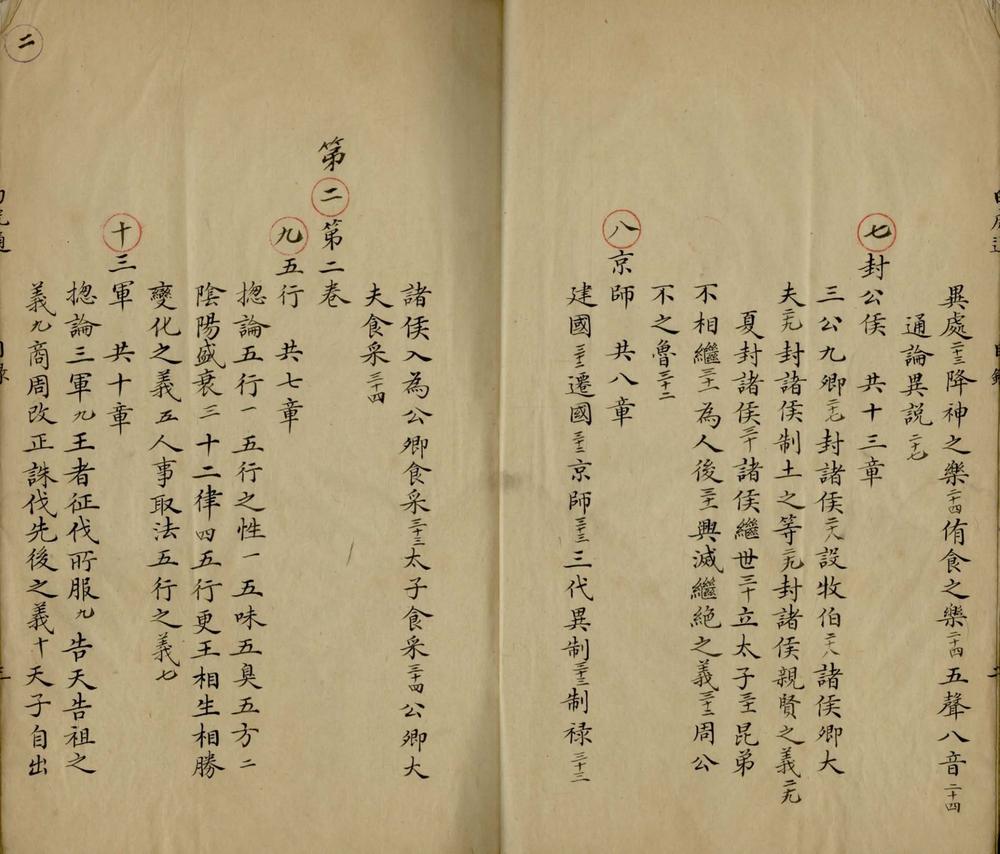 異處二十三降神之樂二十四侑食之樂二十四五聲八音二十四
通論異説二十七
七封公侯 共十三章
三公九卿二十七封諸侯二十八設牧伯二十八諸侯卿大
夫二十九封諸侯制土之等二十九封諸侯親賢之義二十九
夏封諸侯三十諸侯繼世三十立太子三十一昆弟
不相繼三十一為人後三十一興滅繼絶之義三十二周公
不之魯三十二
八京師 共八章
建國三十二遷國三十三京師三十三三代異制三十三制禄三十三
諸侯入為公卿食采三十三太子食采三十四公卿大
夫食采三十四
第二第二卷
九五行 共七章
揔論五行一 五行之性一 五味五臭五方二
陰陽盛衰三 十二律四五行更王相生相勝
變化之義五人事取法五行之義七
十三軍 共十章
揔論三軍九王者征伐所服九 告天告祖之
義九商周改正誅伐先後之義十天子自出
二